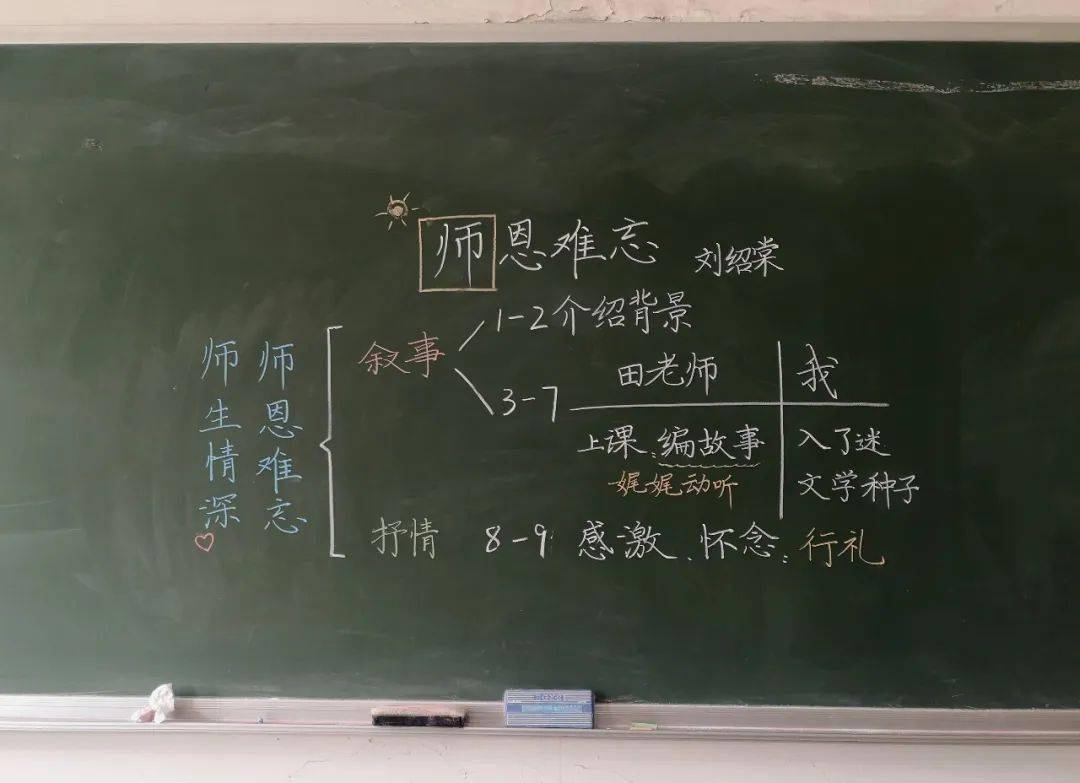 师恩难忘 刘绍棠
师生情深
师恩难忘
叙事
1-2介绍背景
3-7
田老师 我
上课:编故事 入了迷
娓娓动听 文学种子
抒情 8-9 感激、怀念:行礼